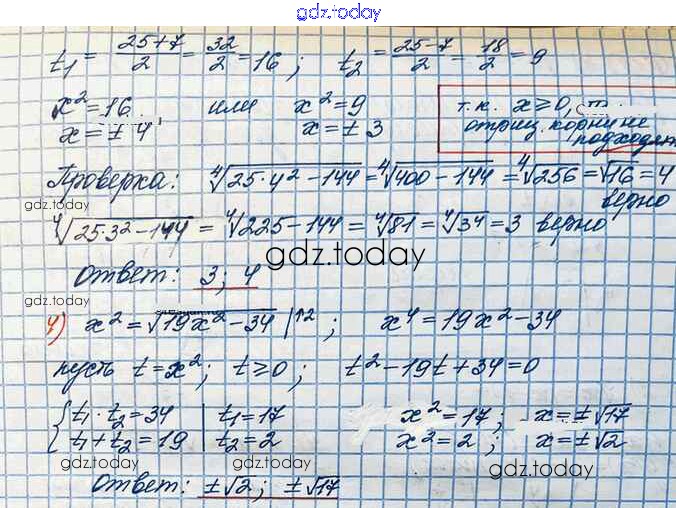 gdz.today
t₁ = (25+7)/2 = 32/2 = 16; t₂ = (25-7)/2 = 18/2 = 9
x² = 16, или x² = 9
x = ± 4, x = ± 3
т.к. x ≥ 0, то
отриц. корни не
подходят
Проверка: ⁴√(25·4² - 144) = ⁴√(400 - 144) = ⁴√256 = √16 = 4
верно
gdz.today
⁴√(25·3² - 144) = ⁴√(225 - 144) = ⁴√81 = ⁴√3⁴ = 3 верно
gdz.today
Ответ: 3; 4
gdz.today
4) x² = √(19x² - 34) |↑2; x⁴ = 19x² - 34
пусть t = x²; t ≥ 0; t² - 19t + 34 = 0
{ t₁ · t₂ = 34 | t₁ = 17 x² = 17; x = ±√17
t₁ + t₂ = 19 | t₂ = 2 x² = 2; x = ±√2
gdz.today gdz.today gdz.today
Ответ: ±√2; ±√17